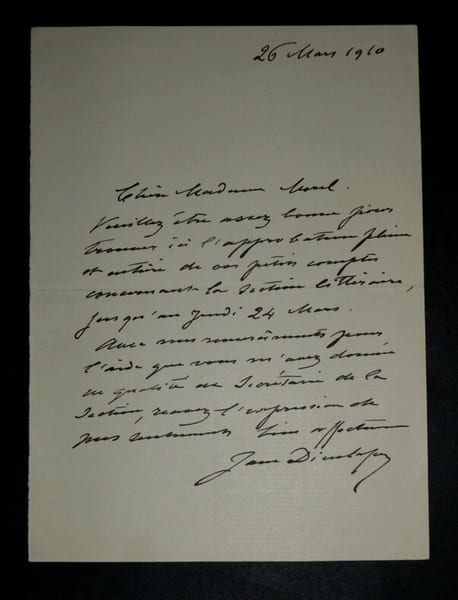 26 Mars 1910
Chère Madame Morel.
Veuillez être assez bonne pour
trouver ici l'approbation pleine
et entière de vos petits comptes
concernant la section littéraire,
jusqu'au jeudi 24 Mars.
Avec mes remerciements pour
l'aide que vous m'avez donnée
en qualité de Secrétaire de la
Section, recevez l'expression de
mes sentiments bien affectueux
Jane Dieulafoy